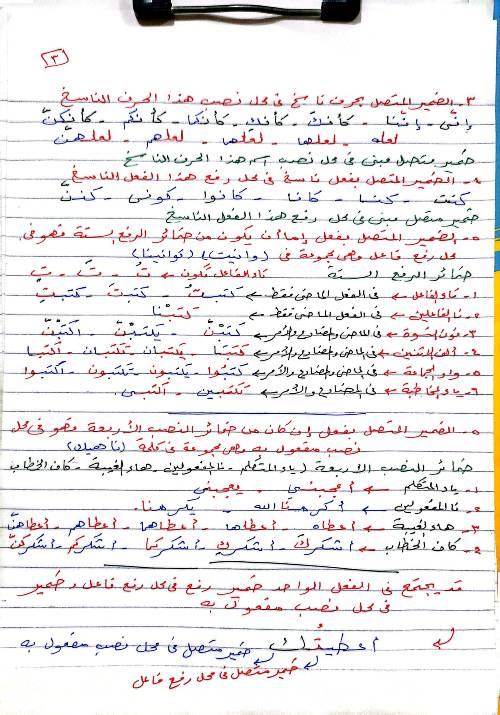 ٣
٣- الضمير المتصل بحرف ناسخ فى محل نصب هذا الحرف الناسخ
إنّنى - إنّنا - كأنكَ - كأنكِ - كأنكما - كأنكم - كأنكنّ
لعله - لعلها - لعلهما - لعلهم - لعلهنّ
ضمير متصل مبنى فى محل نصب اسم هذا الحرف الناسخ
٤- الضمير المتصل بفعل ناسخ فى محل رفع هذا الفعل الناسخ
كنت - كنا - كانا - كانوا - كونى - كنتنّ
ضمير متصل مبنى فى محل رفع هذا الفعل الناسخ
٥- الضمير المتصل بفعل إما أن يكون من ضمائر الرفع الستة فهو فى
محل رفع فاعل وهى مجموعة فى (وانيت) (توانينا)
ضمائر الرفع الستة تاء الفاعل تكون ← تُ - تَ - تِ
١- تاء الفاعل ← فى الفعل الماضى فقط ← كتبتُ - كتبتَ - كتبتِ
٢- نا الفاعلين ← فى الفعل الماضى فقط ← كتبْنا
٣- نون النسوة ← فى الماضى والمضارع والأمر ← كتبْنَ - يكتبْنَ - اكتبْنَ
٤- ألف الاثنين ← فى الماضى والمضارع والأمر ← كتبَا - يكتبان - تكتبان - اكتبا
٥- واو الجماعة ← فى الماضى والمضارع والأمر ← كتبُوا - يكتبون - تكتبون - اكتبوا
٦- ياء المخاطبة ← فى المضارع والأمر ← تكتبين - اكتبى
٥- الضمير المتصل بفعل إن كان من ضمائر النصب الأربعة فهو فى محل
نصب مفعول به وهى مجموعة فى كلمة (ناهيك)
ضمائر النصب الأربعة (ياء المتكلم - نا المفعولين - هاء الغيبة - كاف الخطاب
١- ياء المتكلم ← أعجبنى - يعجبنى
٢- نا المفعولين ← أكرمَنا الله - يكرمنا
٣- هاء الغيبة ← أعطاه - أعطاها - أعطاهما - أعطاهم - أعطاهنّ
٤- كاف الخطاب ← أشكركَ - أشكركِ - أشكركما - أشكركم - أشكركنّ
قد يجتمع فى الفعل الواحد ضمير رفع فى محل رفع فاعل وضمير
فى محل نصب مفعول به
أعطيتُك ضمير متصل فى محل نصب مفعول به
ضمير متصل فى محل رفع فاعل